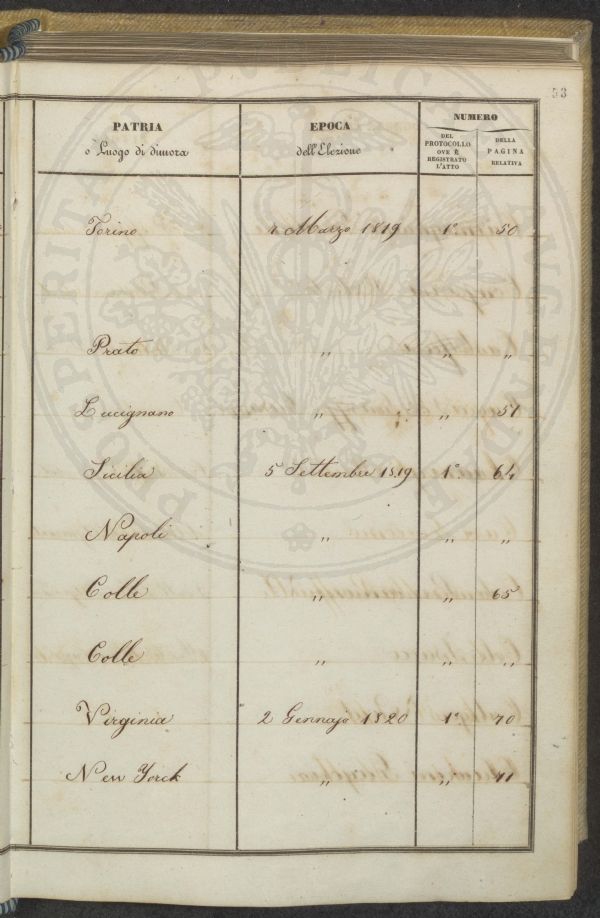 53
PATRIA
o Luogo di dimora
EPOCA
dell'Elezione
NUMERO
DEL
PROTOCOLLO
OVE È
REGISTRATO
L'ATTO
DELLA
PAGINA
RELATIVA
Torino Marzo 1819 1° 50
Prato " " "
Lucignano " " 51
Sicilia 5 Settembre 1819 1° 64
Napoli " " "
Colle " " 65
Colle " " "
Virginia 2 Gennajo 1820 1° 70
New Yorck " " 71